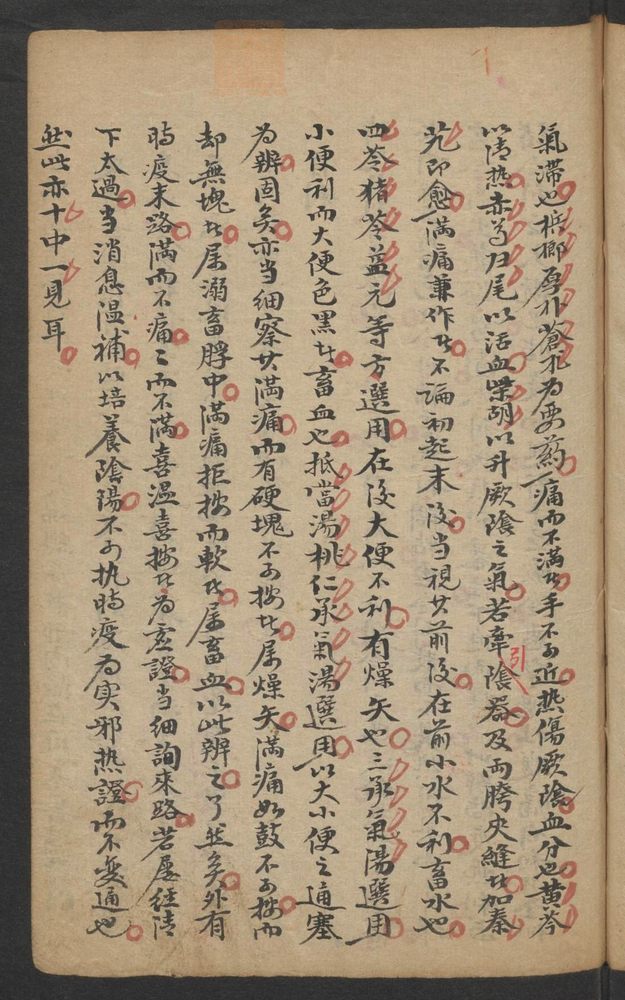 氣滯也梹榔厚朴蒼朮為要藥痛而不滿者手不可近熱傷厥陰血分也黄芩
以清熱赤芍歸尾以活血柴胡以升厥陰之氣若牽引陰器及兩胯夾縫者加秦
艽即愈滿痛兼作者不論初起末後當視其前後在前小水不利畜水也
四苓猪苓益元等方選用在後大便不利有燥矢也三承氣湯選用
小便利而大便色黑者畜血也抵當湯桃仁承氣湯選用以大小便之通塞
為辨固矣亦当細察其滿痛而有硬塊不可按者属燥矢滿痛如鼓不可按而
却無塊者属溺畜脬中滿痛拒按而軟者属畜血以此辨之了然矣外有
時疫末路滿而不痛痛而不滿喜温喜按者為虛證当細詢来路若屢經清
下太過当消息温補以培養陰陽不可执時疫為实邪熱證而不变通也
然此亦十中一見耳